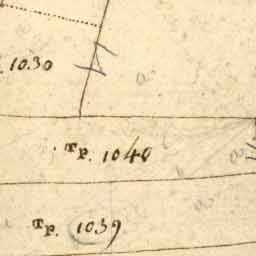 1030
Tp. 1040
Tp. 1039